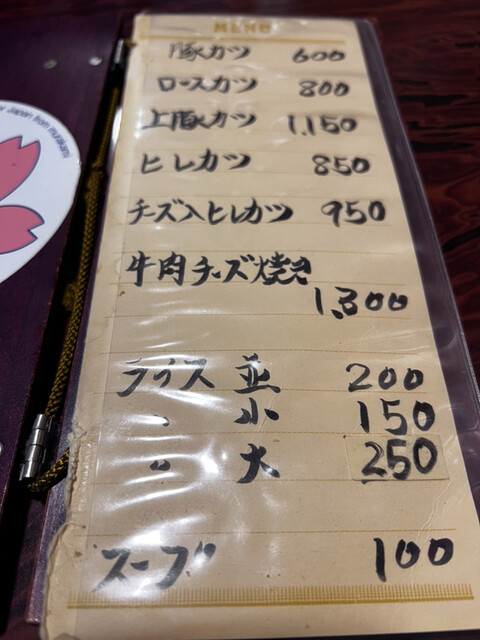 MENU
豚カツ 600
ロースカツ 800
上豚カツ 1,150
ヒレカツ 850
チーズ入ヒレカツ 950
牛肉チーズ焼き
1,300
ライス 並 200
〃 小 150
〃 大 250
スープ 100
Japan from murakami